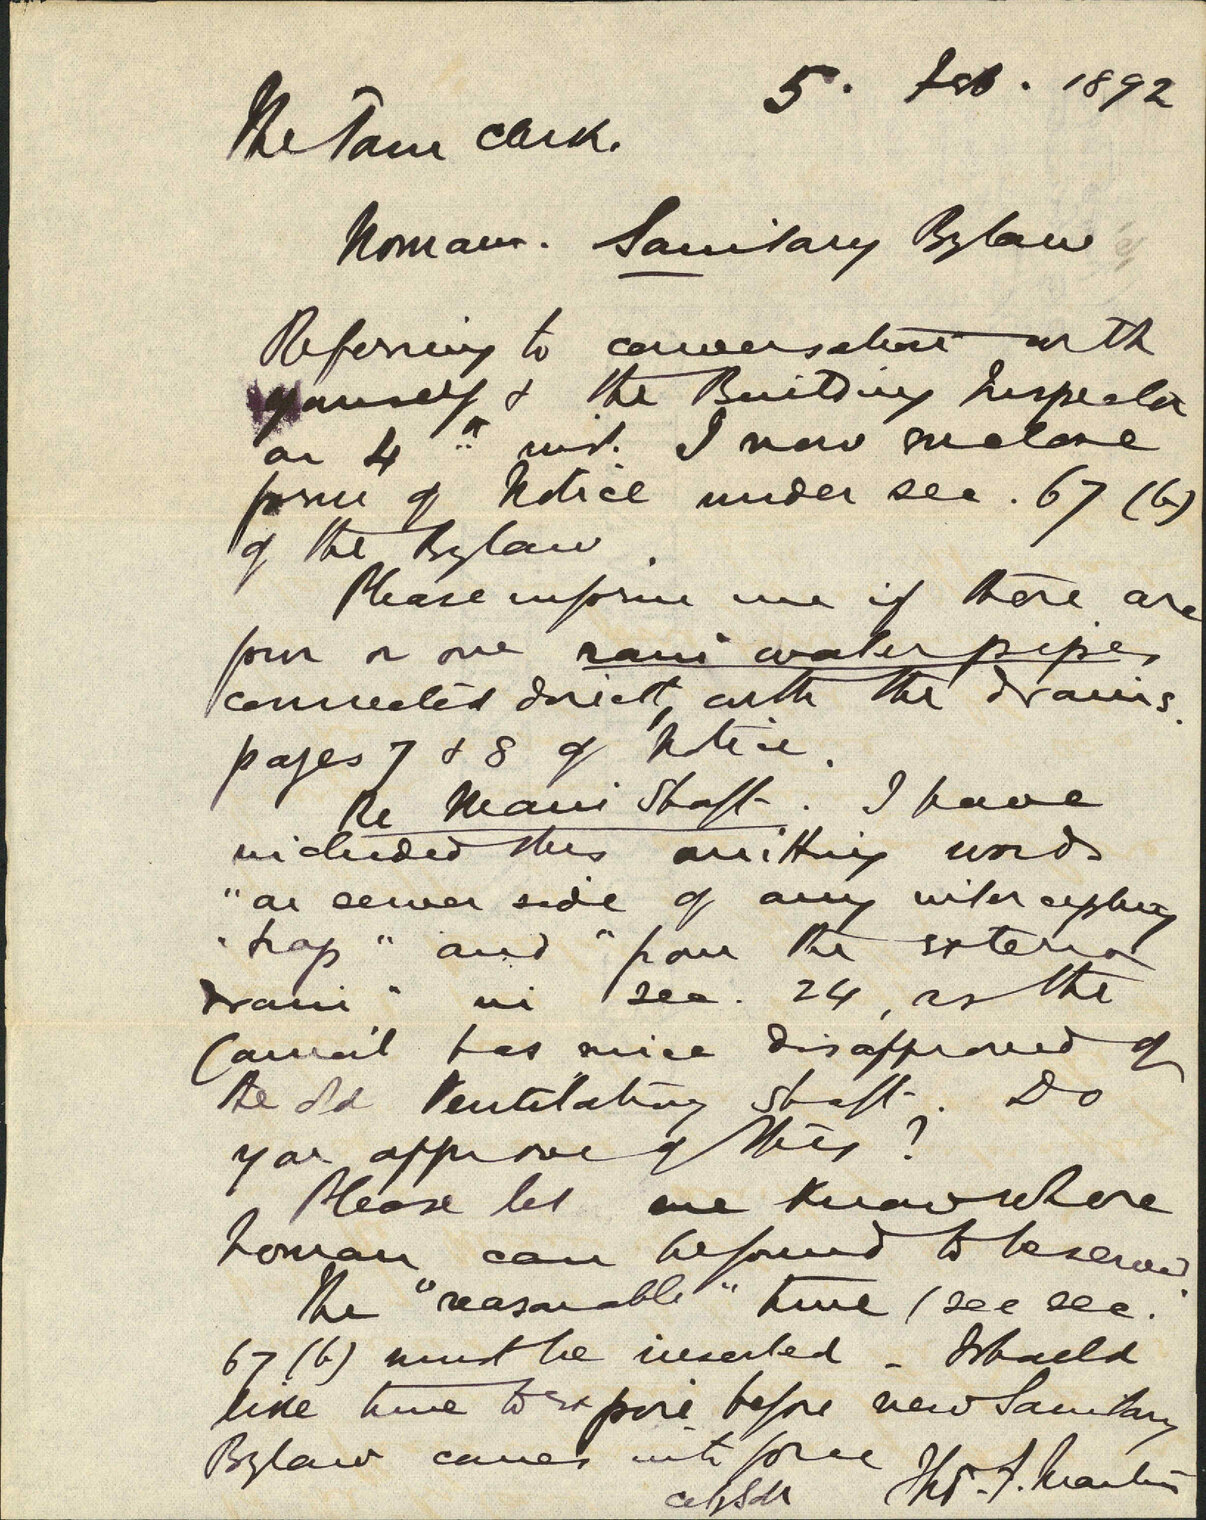 5. Feb. 1892
The Town Clerk.
Norman. Sanitary Bylaw
Referring to conversation with
yourself & the Building Inspector
on 4th inst. I now enclose
form of Notice under sec. 67 (b)
of the Bylaw.
Please inform me if there are
four or one rain water pipes
connected direct, with the drains.
pages 7 & 8 of Notice.
Re Main Shaft. I have
included this omitting words
"on sewer side of any intercepting
"trap" and "from the external
drain" in sec. 24, as the
Council has since disapproved of
the old Ventilating Shaft. Do
you approve of this?
Please let me know where
Norman can be found to be served.
The "reasonable" time (see sec.
67 (b) must be inserted - I should
like time to expire before new Sanitary
Bylaw comes into force
Thos. F. Martin
City Solr